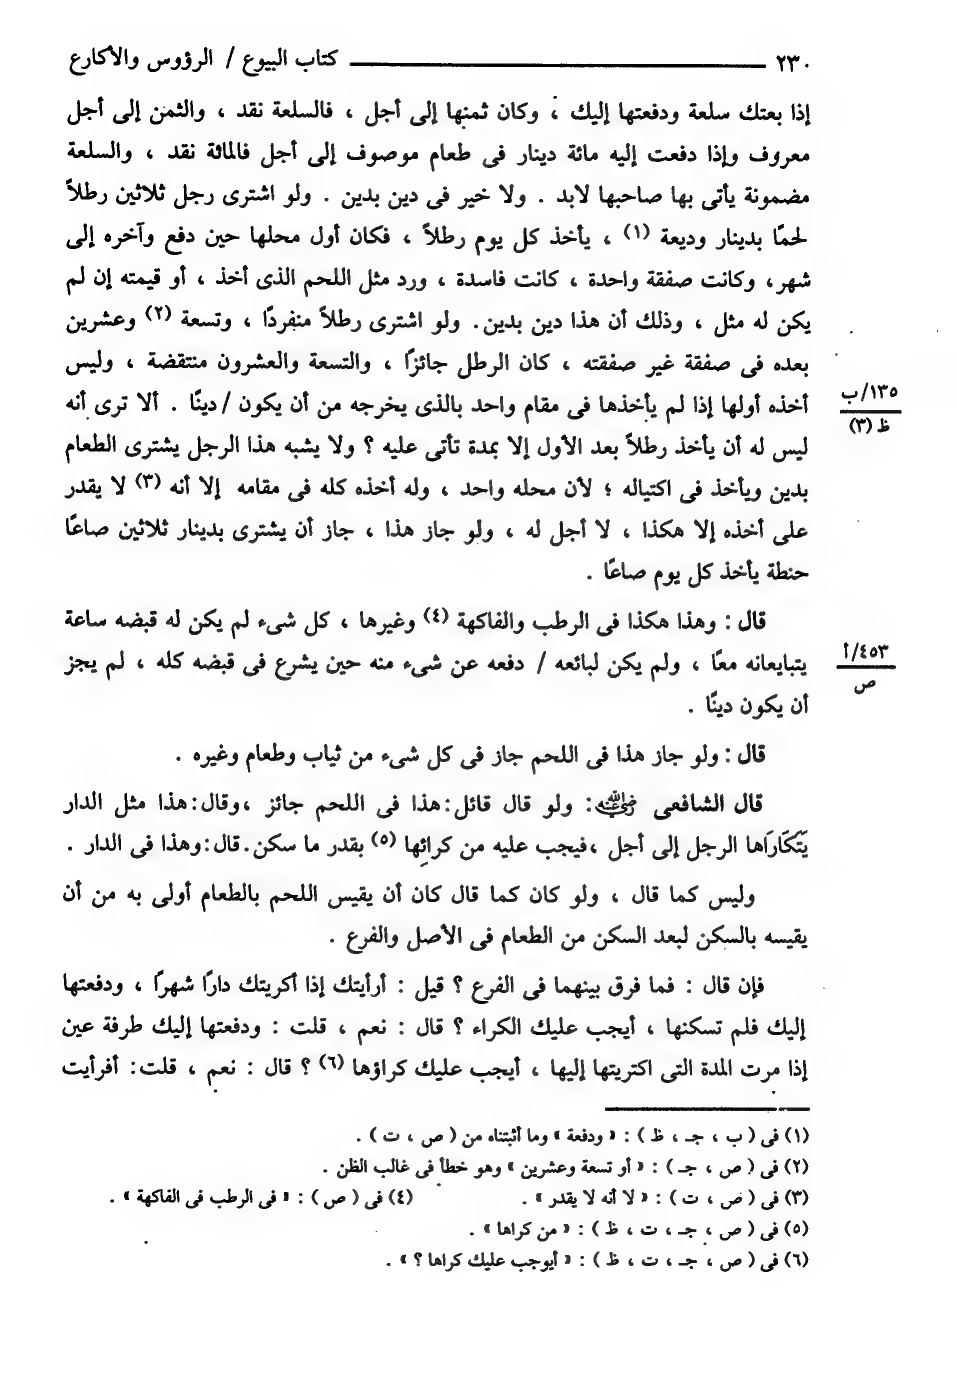 ٢٣٠ كتاب البيوع / الرؤوس والأكارع
إذا بعتك سلعة ودفعتها إليك ، وكان ثمنها إلى أجل ، فالسلعة نقد ، والثمن إلى أجل
معروف وإذا دفعت إليه مائة دينار فى طعام موصوف إلى أجل فالمائة نقد ، والسلعة
مضمونة يأتى بها صاحبها لابد . ولا خير فى دين بدين . ولو اشترى رجل ثلاثين رطلاً
لحمًا بدينار وديعة (١) ، يأخذ كل يوم رطلاً ، فكان أول محلها حين دفع وآخره إلى
شهر، وكانت صفقة واحدة ، كانت فاسدة ، ورد مثل اللحم الذى أخذ ، أو قيمته إن لم
يكن له مثل ، وذلك أن هذا دين بدين. ولو اشترى رطلاً منفردًا ، وتسعة (٢) وعشرين
بعده فى صفقة غير صفقته ، كان الرطل جائزًا ، والتسعة والعشرون منتقضة ، وليس
أخذه أولها إذا لم يأخذها فى مقام واحد بالذى يخرجه من أن يكون / دينًا . ألا ترى أنه
١٣٥/ب
ظ (٣)
ليس له أن يأخذ رطلاً بعد الأول إلا بمدة تأتى عليه ؟ ولا يشبه هذا الرجل يشترى الطعام
بدين ويأخذ فى اكتياله ؛ لأن محله واحد ، وله أخذه كله فى مقامه إلا أنه (٣) لا يقدر
على أخذه إلا هكذا ، لا أجل له ، ولو جاز هذا ، جاز أن يشترى بدينار ثلاثين صاعًا
حنطة يأخذ كل يوم صاعًا .
قال : وهذا هكذا فى الرطب والفاكهة (٤) وغيرها ، كل شىء لم يكن له قبضه ساعة
يتبايعانه معًا ، ولم يكن لبائعه / دفعه عن شىء منه حين يشرع فى قبضه كله ، لم يجز
٤٥٣/أ
ص
أن يكون دينًا .
قال : ولو جاز هذا فى اللحم جاز فى كل شىء من ثياب وطعام وغيره .
قال الشافعى رضي الله عنه: ولو قال قائل:هذا فى اللحم جائز ،وقال:هذا مثل الدار
يَتَكَارَاها الرجل إلى أجل ،فيجب عليه من كرائها (٥) بقدر ما سكن.قال:وهذا فى الدار .
وليس كما قال ، ولو كان كما قال كان أن يقيس اللحم بالطعام أولى به من أن
يقيسه بالسكن لبعد السكن من الطعام فى الأصل والفرع .
فإن قال : فما فرق بينهما فى الفرع ؟ قيل : أرأيتك إذا أكريتك دارًا شهرًا ، ودفعتها
إليك فلم تسكنها ، أيجب عليك الكراء ؟ قال : نعم ، قلت : ودفعتها إليك طرفة عين
إذا مرت المدة التى اكتريتها إليها ، أيجب عليك كراؤها (٦) ؟ قال : نعم ، قلت: أفرأيت
(١) فى ( ب ، جـ ، ظ ) : « ودفعة » وما أثبتناه من ( ص ، ت ) .
(٢) فى ( ص ، جـ ) : « أو تسعة وعشرين » وهو خطأ فى غالب الظن .
(٣) فى ( ص ، ت ) : « لا أنه لا يقدر » . (٤) فى ( ص ) : « فى الرطب فى الفاكهة » .
(٥) فى ( ص ، جـ ، ت ، ظ ) : « من كراها » .
(٦) فى ( ص ، جـ ، ت ، ظ ) : « أيوجب عليك كراها ؟ » .